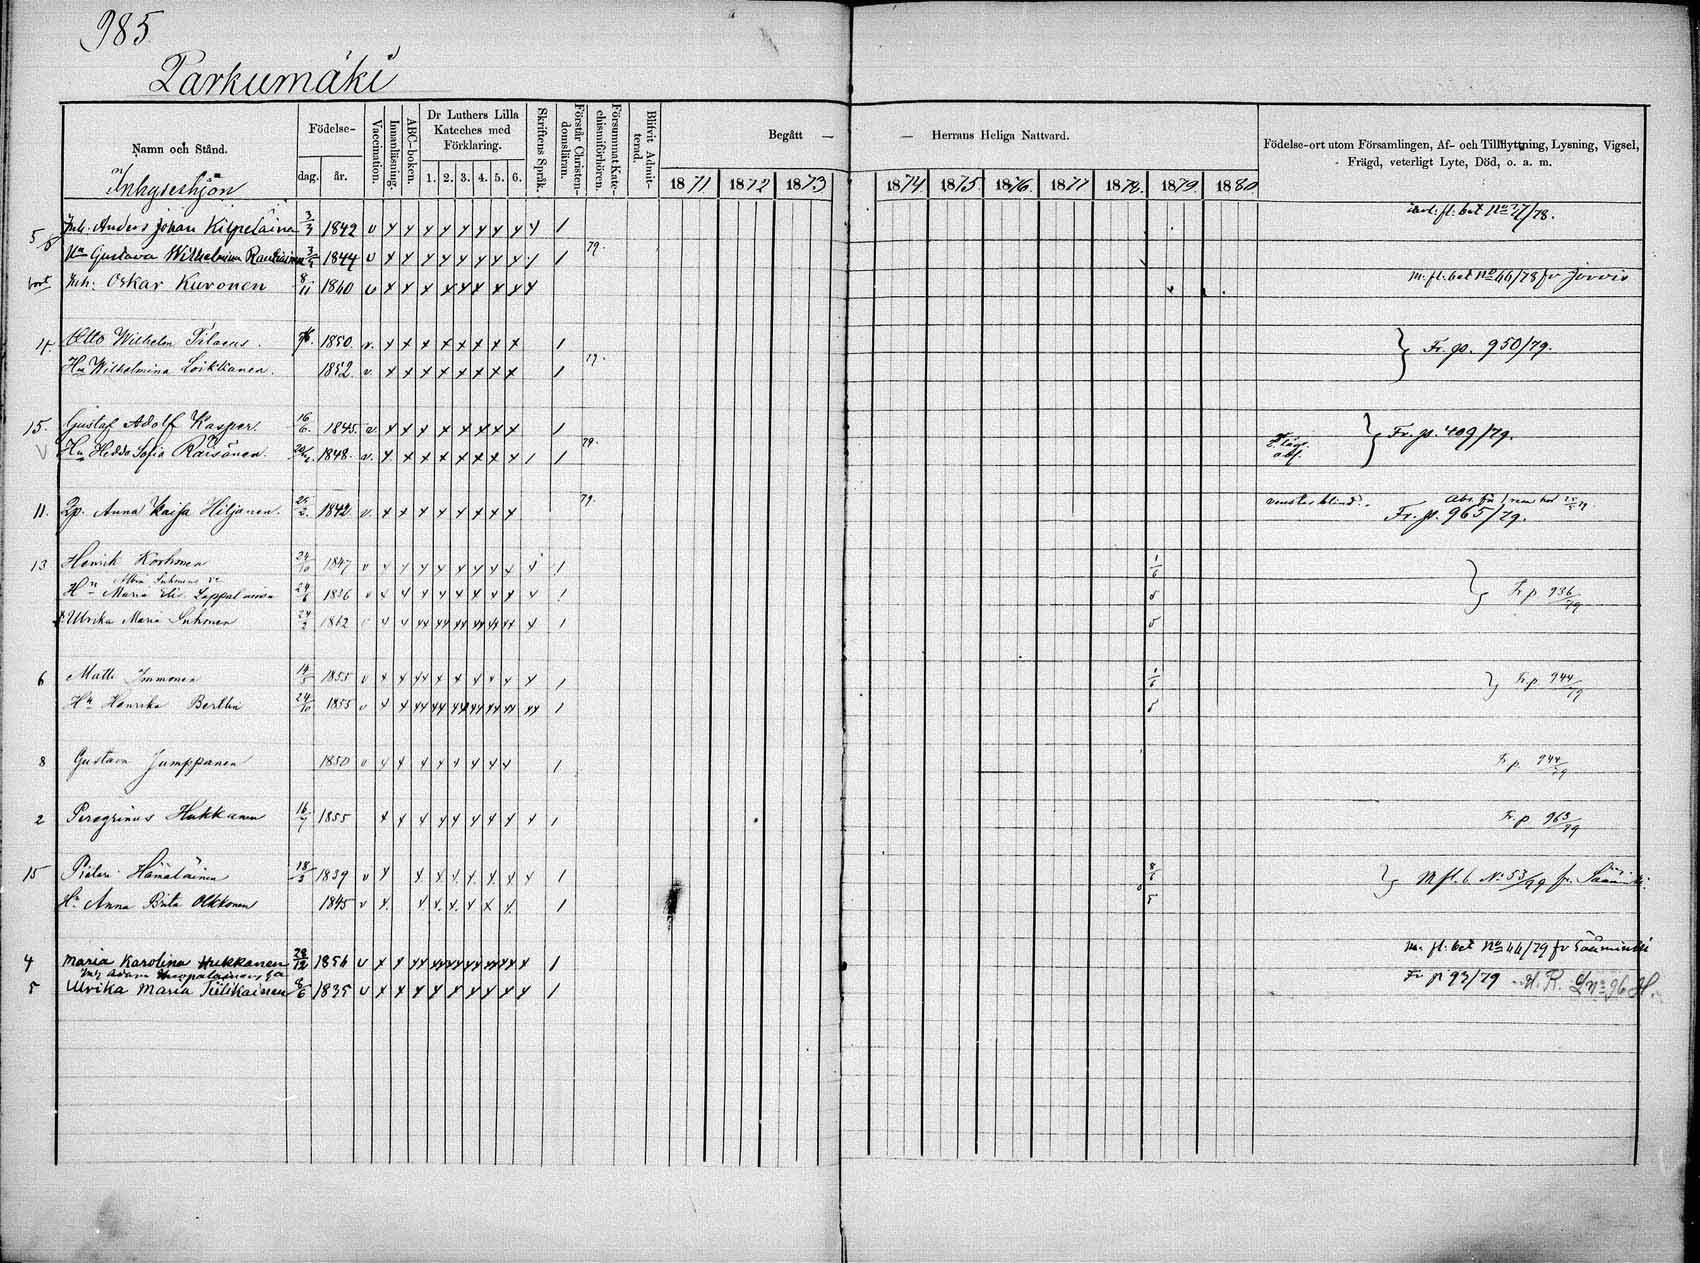 985
Parkumäki
Namn och Stånd.
Födelse-
dag.
år.
Vaccination.
Innanläsning.
ABC-boken.
Dr Luthers Lilla
Kateches med
Förklaring.
1. 2. 3. 4. 5. 6.
Skriftens Språk.
Förstår Christen-
domsläran.
Försummat Kate-
chismiförhören.
Blifvit Admit-
terad.
Begått — — Herrans Heliga Nattvard.
1871 1872 1873 1874 1875 1876 1877 1878 1879 1880
Födelse-ort utom Församlingen, Af- och Tillflyttning, Lysning, Vigsel,
Frägd, veterligt Lyte, Död, o. a. m.
Inhyseshjon
Inh. Anders Johan Kilpeläinen 3/3 1842 v x x x x x x x x x 1 fl. bet No 37/78.
Hu Gustava Wilhelmina 1844 v x x x x x x x x 1 79.
bort Inh: Oskar Kuronen 8/11 1860 v x x x x x x x x x m. fl. bet No 46/78 fr Jorois
4. Otto Wilhelm Pilacus. 1850. v. x x x x x x x x 1 Fr. p. 950/79.
Hu Wilhelmina Loikkanen. 1852 v. x x x x x x x x 1 79.
15. Gustaf Adolf Kasper. 16/6. 1845. v. x x x x x x x x 1 Fr. p. 409/79.
Hu Hedda Sofia Räisänen. 1848. v. x x x x x x x x 1 1 79.
11. Anna Kaisa Hiljanen. 25/2. 1842. v. x x x x x x x x 79. Fr. p. 965/79.
13 Henrik Korhonen 24/10 1847 v x x x x x x x x x 1 1/6
Hn Maria Eli. Lappalainen 24/6 1836 v x x x x x x x x x 1 Fr p 936/79
Ulrika Maria Inhonen 24/2 1862 v x x xx xx xx xx xx xx x 1
6 Matti Immonen 14/5 1855 v x x xx x x x x x x 1 1/6 Fr p 944/79
Hn Henrika Berttin 24/10 1855 v x x xx xx xx xx xx xx xx 1
8 Gustava Jumppanen 1850 v x x x x x x x x 1 Fr p. 944/79
2 Peregrinus Hukkanen 16/7 1855 x x x x x x x x x 1 Fr. p 963/79
15 Pieter Hänäläinen 18/3 1839 v x x x x x x x x 1 8/6 M fl. b. No 53/79 fr. Sääminki
Hn Anna Brita Olkkonen 1845 v x x x x x x x 1
4 Maria Karolina Hukkanen 28/12 1856 v x x xx xx xx xx xx xx x 1 m. fl. bet No 44/79 fr Sääminki
Inh Adam
5 Ulrika Maria Tiilikainen 8/6 1835 v x x x x x x x x x 1 Fr p 93/79